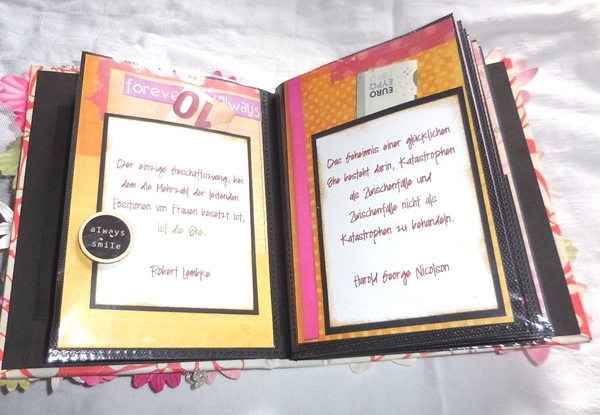 forever always
10
Der einzige Geschäftszweig, bei
dem die Mehrzahl der leitenden
Positionen von Frauen besetzt ist,
ist die Ehe.
Robert Lembke
always
smile
EURO
ΕΥΡΩ
Das Geheimnis einer glücklichen
Ehe besteht darin, Katastrophen
als Zwischenfälle und
Zwischenfälle nicht als
Katastrophen zu behandeln.
Harold George Nicolson